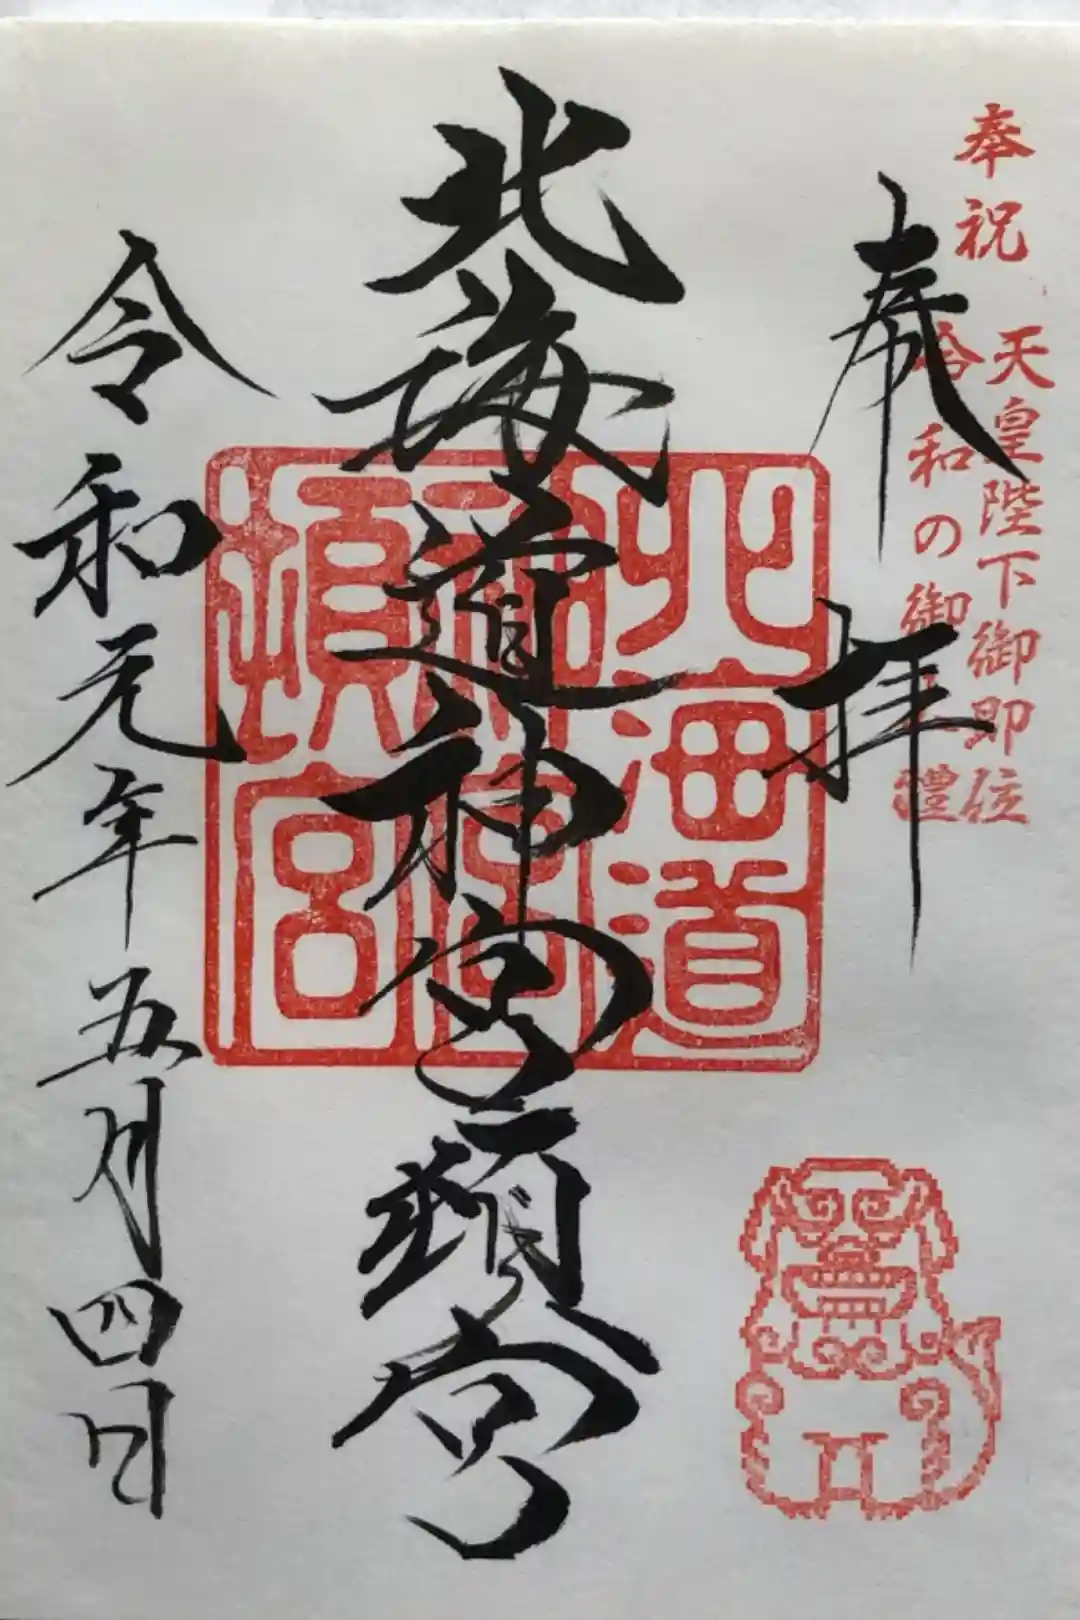 奉祝
天皇陛下御即位
令和の御大禮
奉拝
北海道神宮頓宮
北海道
神宮
頓宮
令和元年五月四日